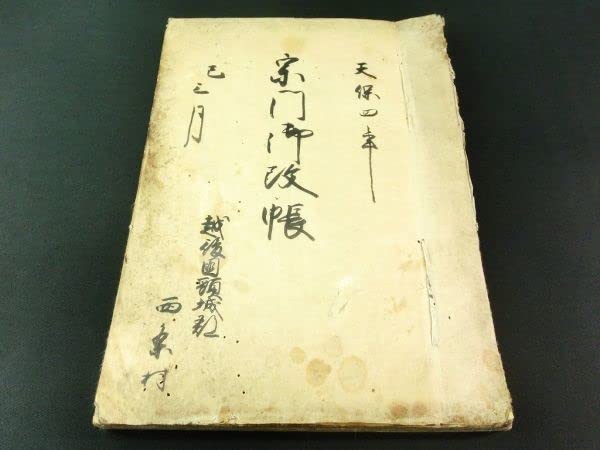 天保四年
宗門御改帳
巳三月
越後国頸城郡
西条村